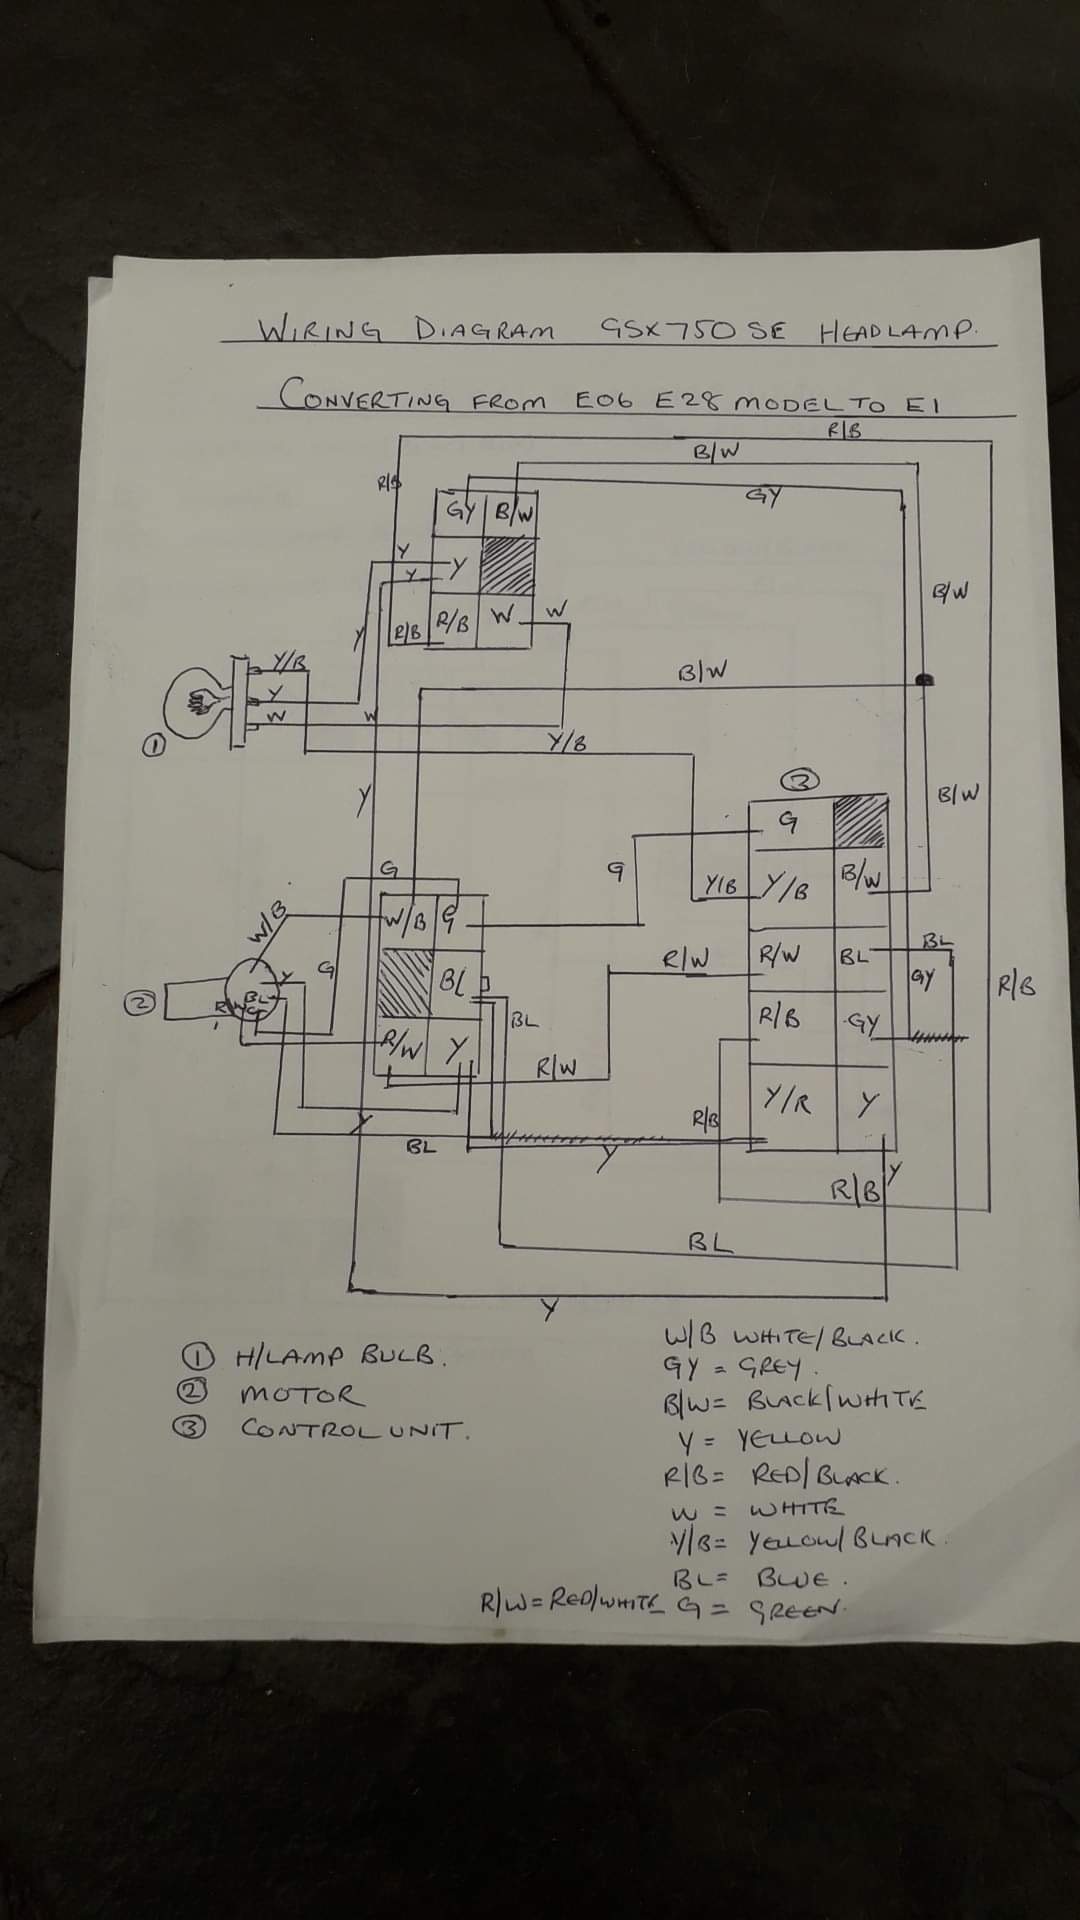 WIRING DIAGRAM GSX750SE HEADLAMP.
CONVERTING FROM E06 E28 MODEL TO E1
R/B
B/W
R/B
GY
GY B/W
Y
Y
Y
B/W
R/B R/B W W
Y
Y/B
Y
W
W
B/W
Y/B
1
3
Y
B/W
G
G
G
Y/B Y/B B/W
W/B
W/B G
R/W R/W BL BL
G
Y
BL
GY
R/B
2
R/W BL G
BL
R/B GY
R/W Y
R/W
Y/R Y
R/B
Y
BL
Y
Y
R/B
BL
Y
1 H/LAMP BULB.
2 MOTOR
3 CONTROL UNIT.
W/B WHITE/BLACK.
GY = GREY.
B/W = BLACK/WHITE
Y = YELLOW
R/B = RED/BLACK.
W = WHITE
Y/B = YELLOW/BLACK.
BL = BLUE.
R/W = RED/WHITE G = GREEN.